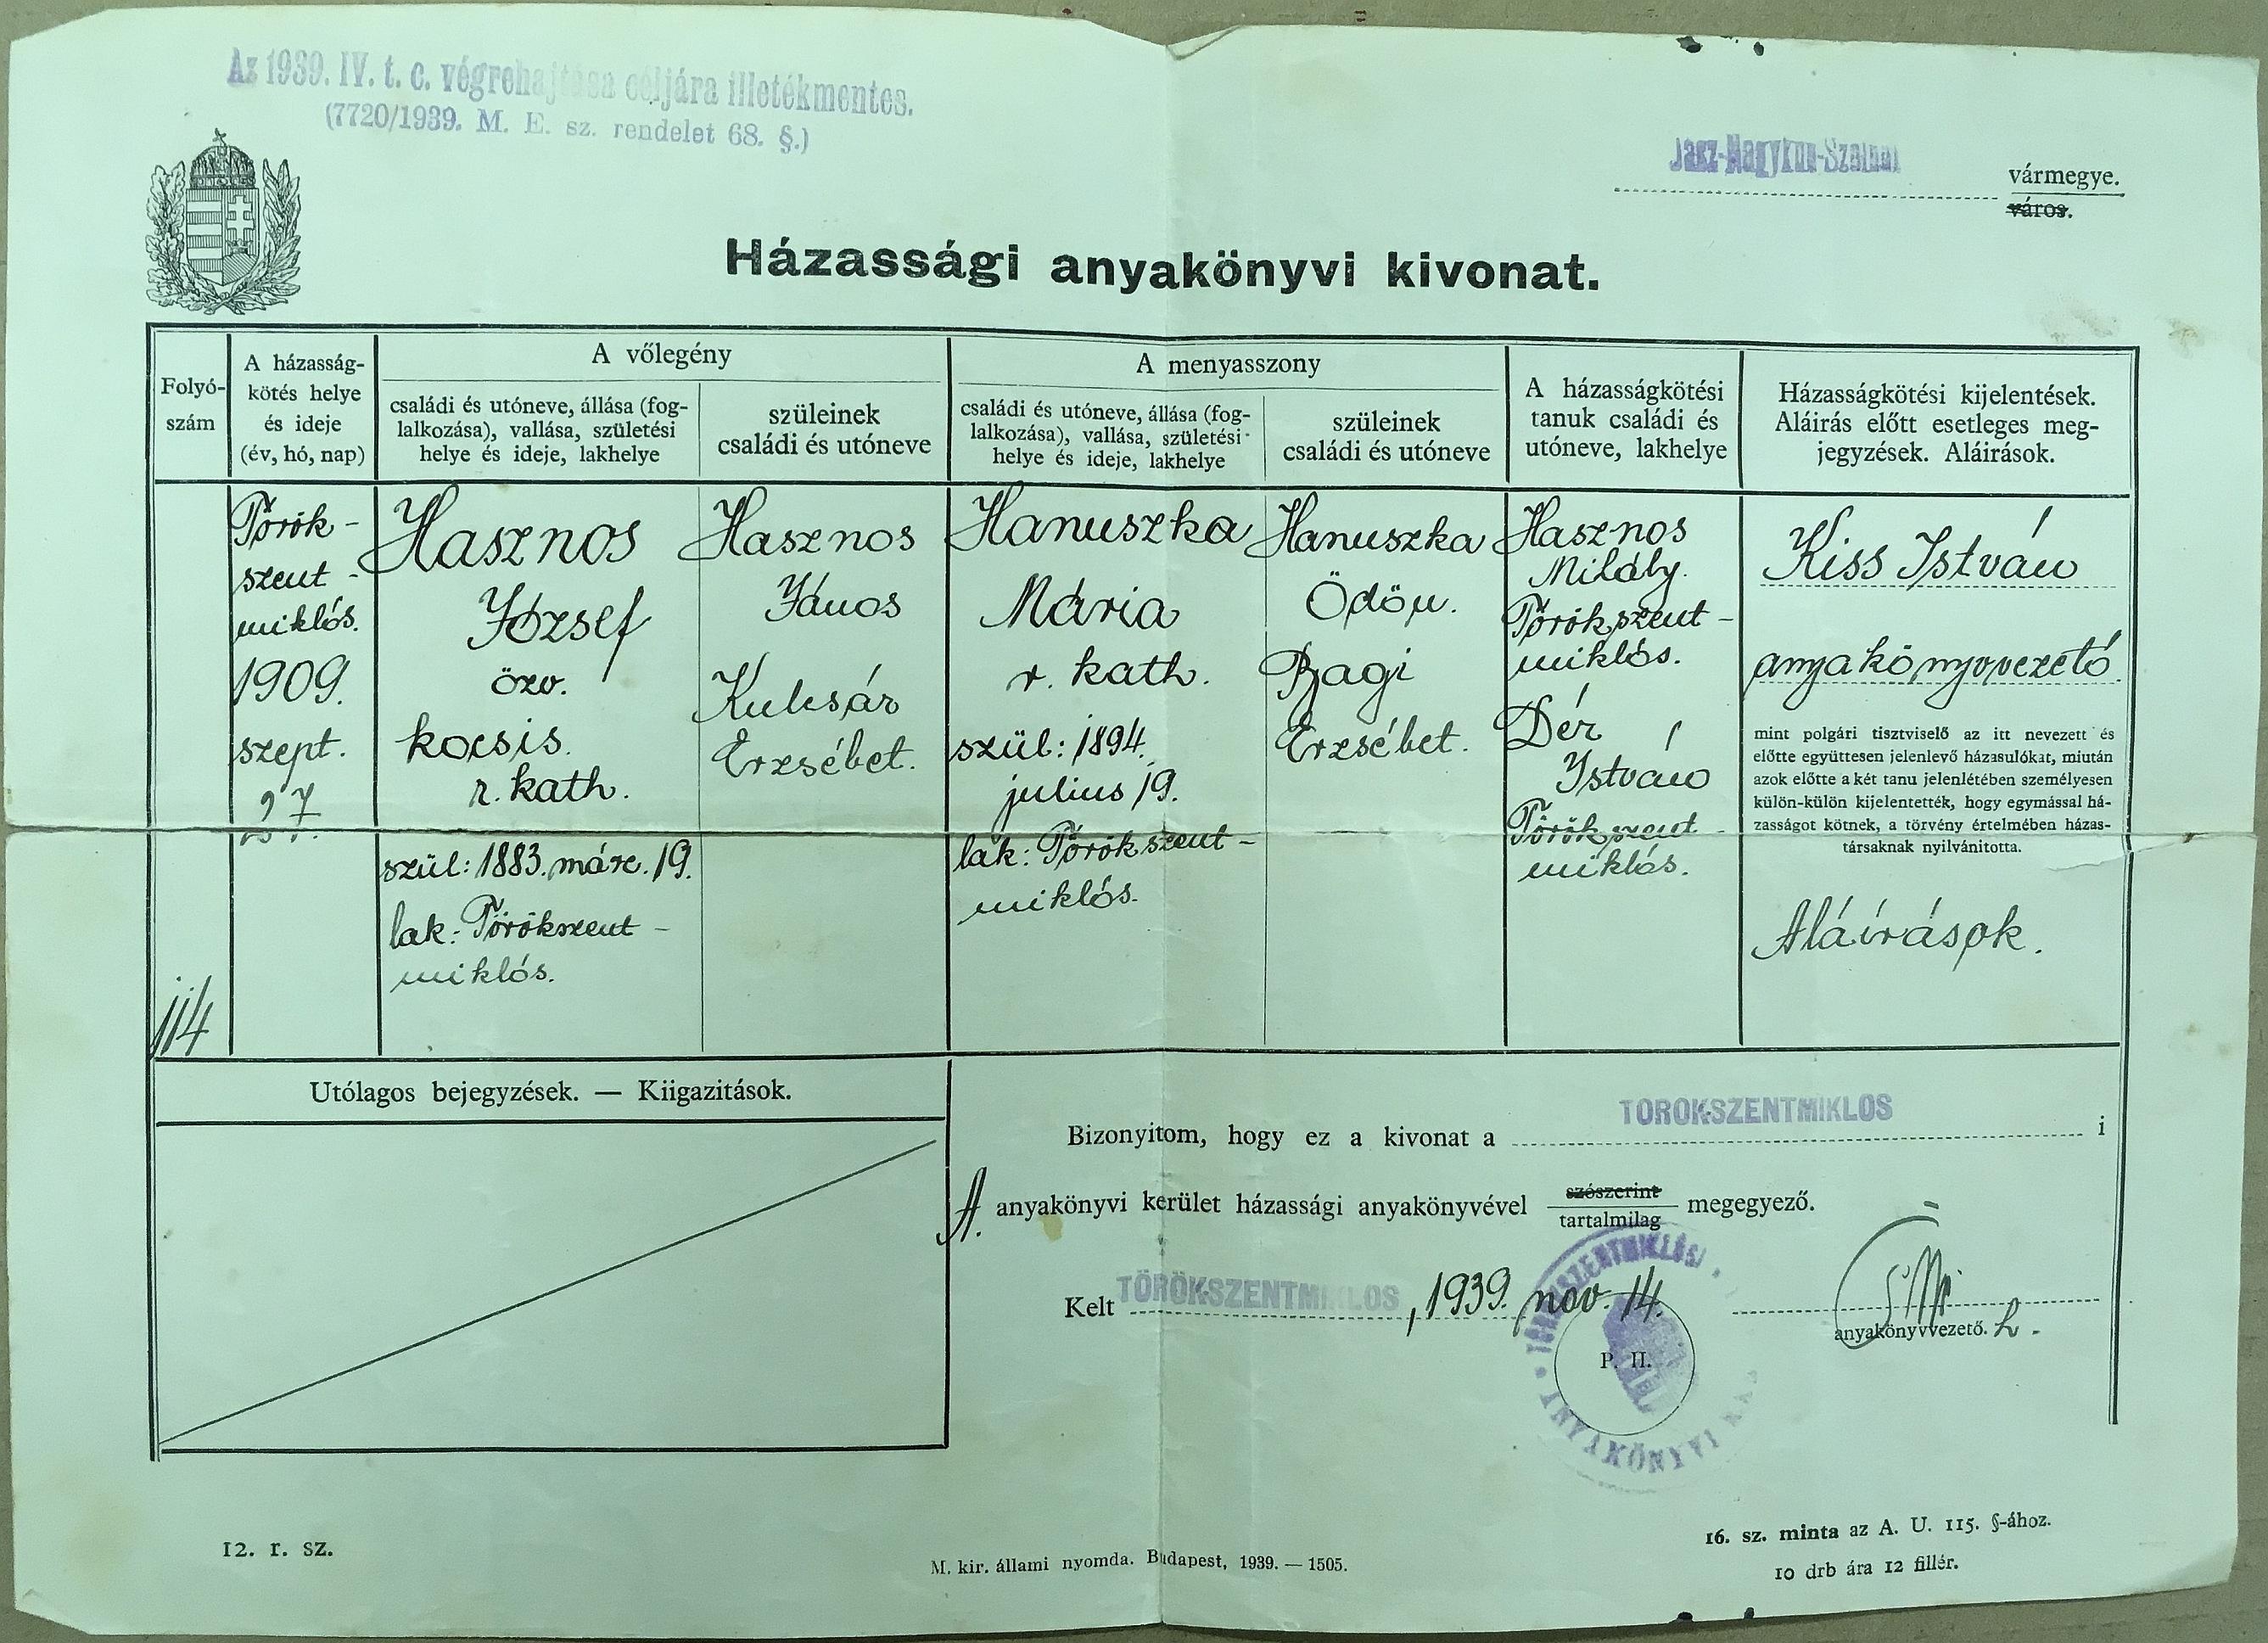 Az 1939. IV. t. c. végrehajtása céljára illetékmentes.
(7720/1939. M. E. sz. rendelet 68. §.)
Jász-Nagykun-Szolnok
vármegye.
város.
Házassági anyakönyvi kivonat.
Folyó-
szám
A házasság-
kötés helye
és ideje
(év, hó, nap)
A vőlegény
családi és utóneve, állása (fog-
lalkozása), vallása, születési
helye és ideje, lakhelye
szüleinek
családi és utóneve
A menyasszony
családi és utóneve, állása (fog-
lalkozása), vallása, születési
helye és ideje, lakhelye
szüleinek
családi és utóneve
A házasságkötési
tanuk családi és
utóneve, lakhelye
Házasságkötési kijelentések.
Aláirás előtt esetleges meg-
jegyzések. Aláirások.
114
Török-
szent-
miklós.
1909.
szept.
27.
Hasznos
József
özv.
kocsis.
r. kath.
szül: 1883. márc. 19.
lak: Törökszent-
miklós.
Hasznos
János
Kulcsár
Erzsébet.
Hanuszka
Mária
r. kath.
szül: 1894.
július 19.
lak: Törökszent-
miklós.
Hanuszka
Ödön.
Bagi
Erzsébet.
Hasznos
Mihály.
Törökszent-
miklós.
Dér
István
Törökszent-
miklós.
Kiss István
anyakönyvvezető
mint polgári tisztviselő az itt nevezett és
előtte együttesen jelenlevő házasulókat, miután
azok előtte a két tanu jelenlétében személyesen
külön-külön kijelentették, hogy egymással há-
zasságot kötnek, a törvény értelmében házas-
társaknak nyilvánitotta.
Aláírások.
Utólagos bejegyzések. — Kiigazitások.
Bizonyitom, hogy ez a kivonat a TÖRÖKSZENTMIKLÓS i
A. anyakönyvi kerület házassági anyakönyvével szószerint megegyező.
tartalmilag
Kelt TÖRÖKSZENTMIKLOS, 1939. nov. 14.
TÖRÖKSZENTMIKLÓSI
ANYAKÖNYVI
P. H.
anyakönyvvezető. h.
12. r. sz.
M. kir. állami nyomda. Budapest, 1939. — 1505.
16. sz. minta az A. U. 115. §-ához.
10 drb ára 12 fillér.